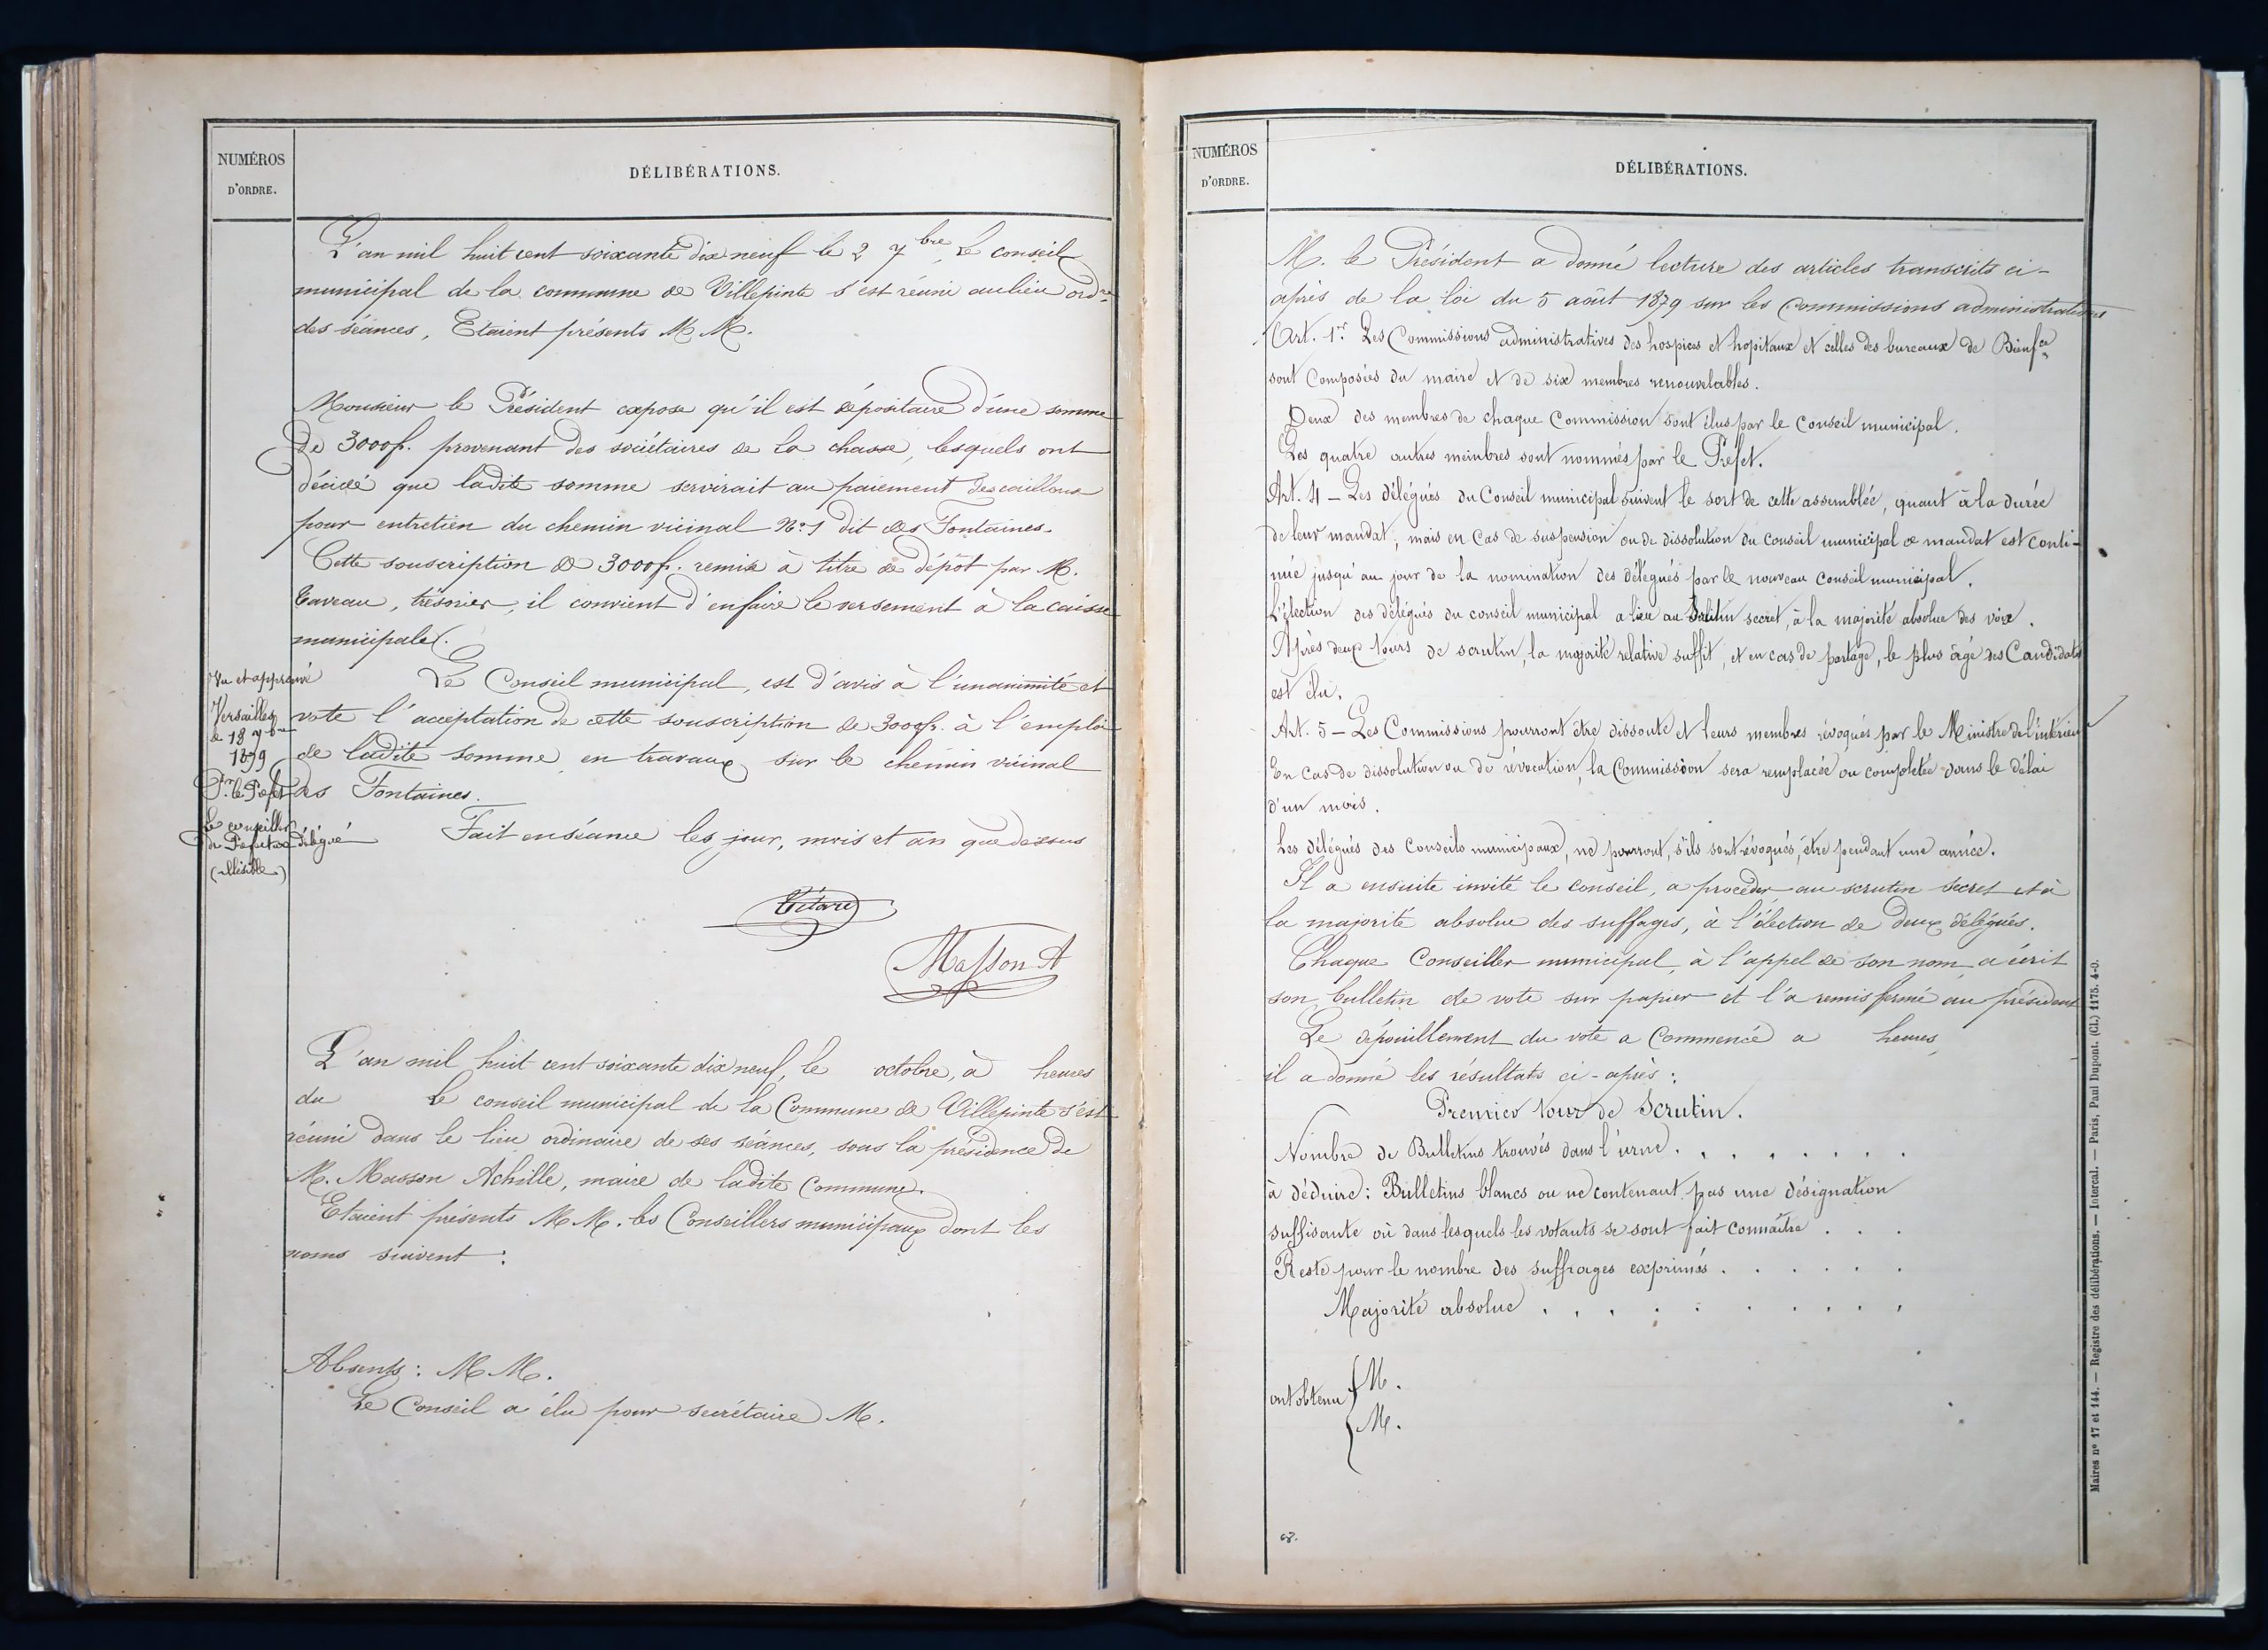 NUMÉROS
D'ORDRE.
DÉLIBÉRATIONS.
L'an mil huit cent soixante dix neuf le 2 7bre, Le conseil
municipal de la commune de Villepinte s'est réuni au lieu ordre
des séances, Etaient présents M.M.
Monsieur le Président expose qu'il est dépositaire d'une somme
de 3000f. provenant des sociétaires de la chasse, lesquels ont
décidé que ladite somme servirait au paiement des cailloux
pour entretien du chemin vicinal No. 1 dit des Fontaines.
Cette souscription de 3000f. remise à titre de dépôt par M.
Taveau, trésorier, il convient d'en faire le versement à la caisse
municipale.
Le Conseil municipal, est d'avis à l'unanimité et
vote l'acceptation de cette souscription de 3000f. à l'emploi
de ladite somme en travaux sur le chemin vicinal
des Fontaines.
Fait en séance les jour, mois et an que dessus
Vu et approuvé
Versailles
le 18 7bre
1879
Pr. le Préfet
Le conseiller
de Préfecture délégué
(illisible)
Masson A
L'an mil huit cent soixante dix neuf, le octobre, à heures
du Le conseil municipal de la Commune de Villepinte s'est
réuni dans le lieu ordinaire de ses séances, sous la présidence de
M. Masson Achille, maire de ladite Commune.
Etaient présents M.M. les Conseillers municipaux dont les
noms suivent :
Absents : M.M.
Le Conseil a élu pour secrétaire M.
NUMÉROS
D'ORDRE.
DÉLIBÉRATIONS.
M. le Président a donné lecture des articles transcrits ci-
après de la loi du 5 août 1879 sur les Commissions administratives
Art. 1er Les Commissions administratives des hospices et hopitaux et celles des bureaux de Bienfce
sont Composées du maire et de six membres renouvelables.
Deux des membres de chaque Commission sont élus par le Conseil municipal.
Les quatre autres membres sont nommés par le Préfet.
Art. 4 — Les délégués du Conseil municipal suivent le sort de cette assemblée, quant à la durée
de leur mandat, mais en Cas de suspension ou de dissolution du conseil municipal ce mandat est conti-
nué jusqu'au jour de la nomination des délégués par le nouveau Conseil municipal.
L'élection des délégués du conseil municipal a lieu au secret, à la majorité absolue des voix.
Après deux tours de scrutin, la majorité relative suffit, et en cas de partage, le plus âgé des Candidats
est élu.
Art. 5 — Les Commissions pourront être dissoute et leurs membres révoqués par le Ministre de l'intérieur
En Cas de dissolution ou de révocation, la Commission sera remplacée ou complétée dans le délai
d'un mois.
Les délégués des Conseils municipaux, ne pourront, s'ils sont révoqués, être pendant une année.
Il a ensuite invité le conseil, a procéder au scrutin secret et à
la majorité absolue des suffages, à l'élection de deux délégués.
Chaque Conseiller municipal, à l'appel de son nom a écrit
son bulletin de vote sur papier et l'a remis fermé au président
Le dépouillement du vote a Commencé a heures,
il a donné les résultats ci-après :
Premier tour de Scrutin.
Nombre de Bulletins trouvés dans l'urne . . . . . . . .
à déduire : Bulletins blancs ou ne contenant pas une désignation
suffisante où dans lesquels les votants se sont fait connaître . . .
Reste pour le nombre des suffrages exprimés . . . . . .
Majorité absolue . . . . . . . . . .
ont obtenu { M.
M.
Maires nos 17 et 144. — Registre des délibérations. — Intercal. — Paris, Paul Dupont. (Cl.) 1175. 4-9.